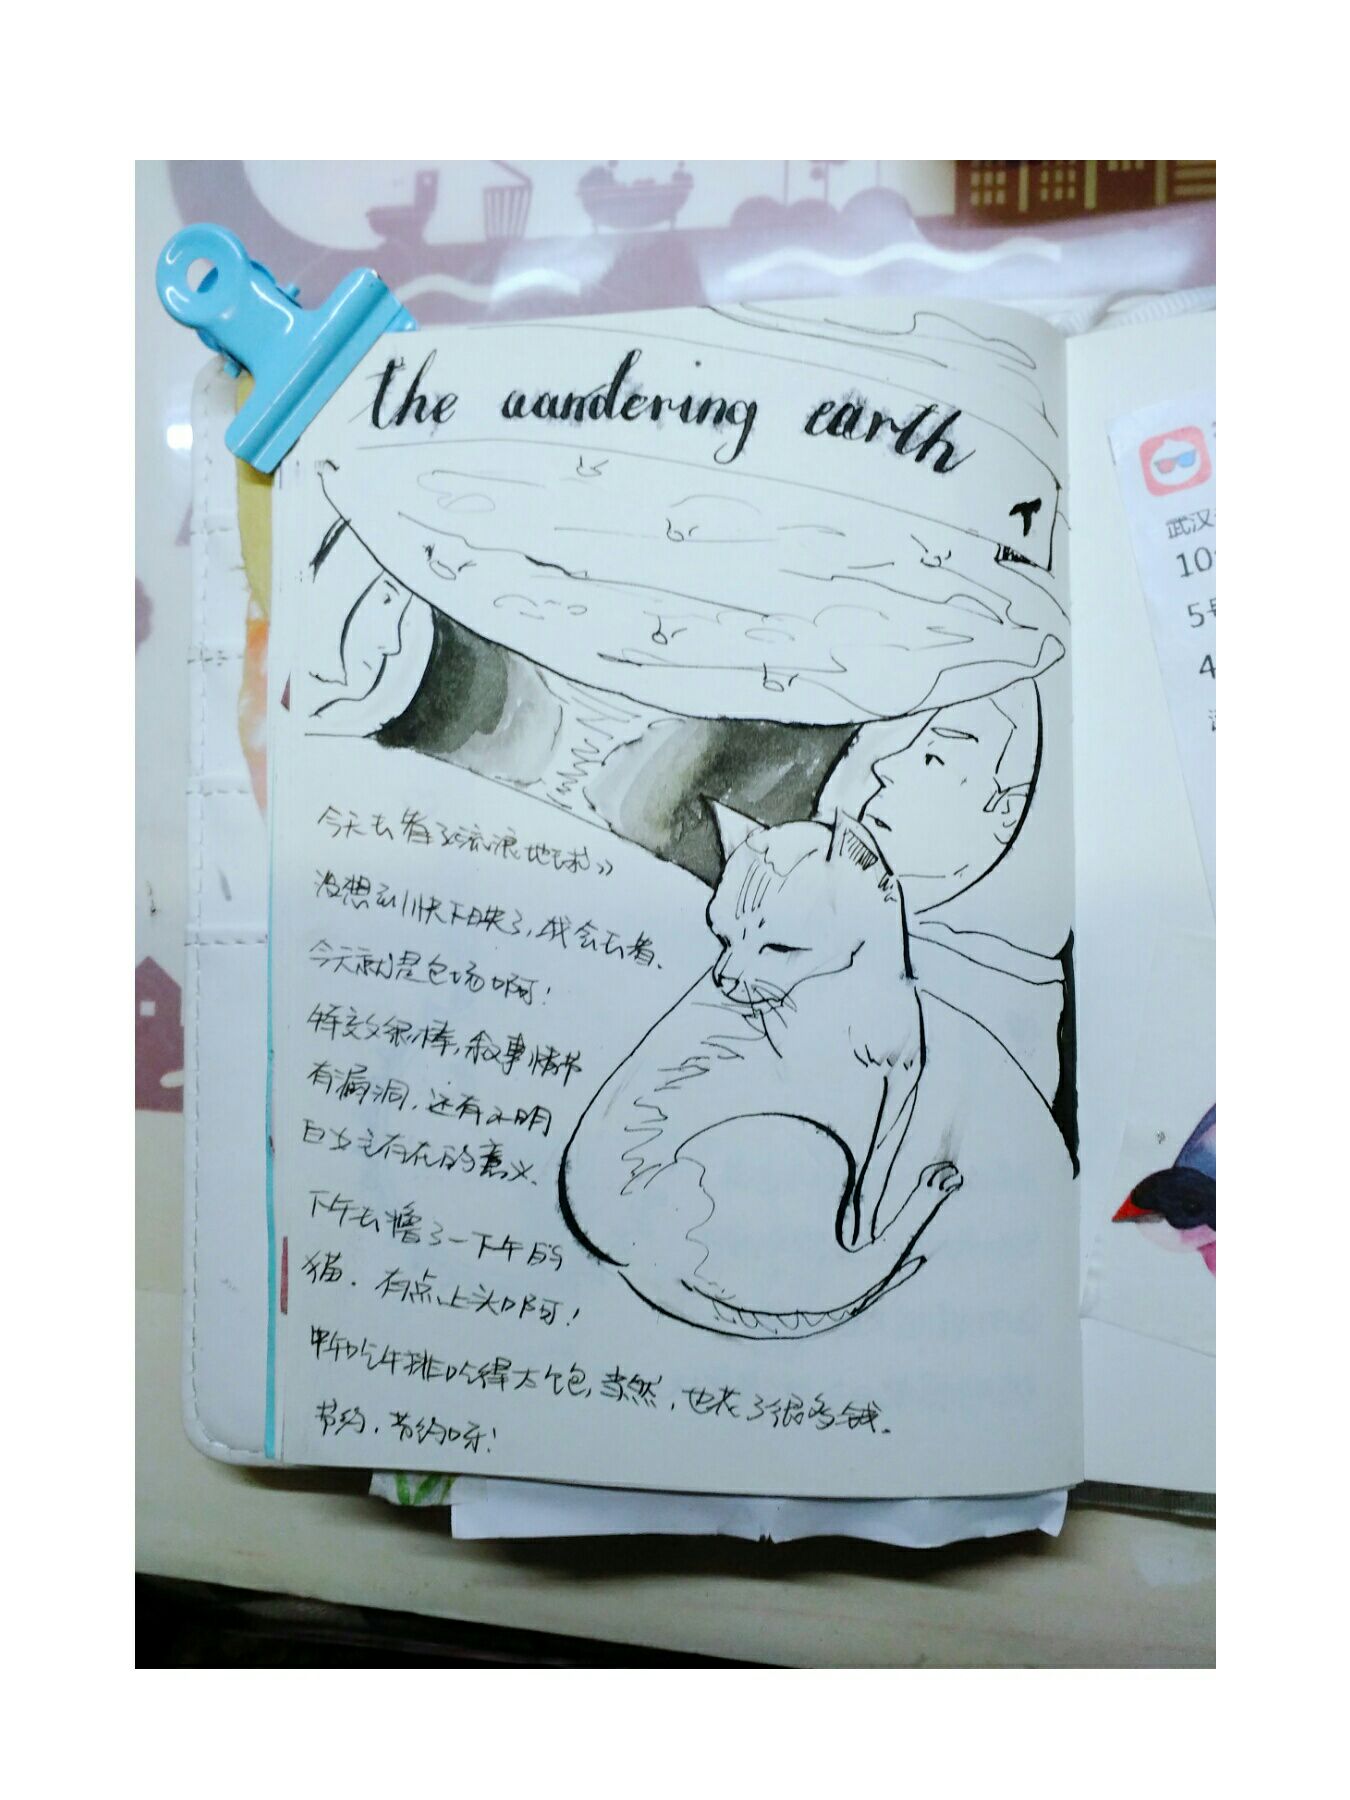 the wandering earth
今天去看了《流浪地球》
没想到快下映了，我会去看.
今天就是包场啊！
特效很棒，叙事情节
有漏洞，还有不明
白女主存在的意义.
下午去撸了一下午的
猫. 有点上头啊！
中午吃牛排吃得太饱，当然，也花了很多钱.
节约，节约呀！
武汉
10
5号
4